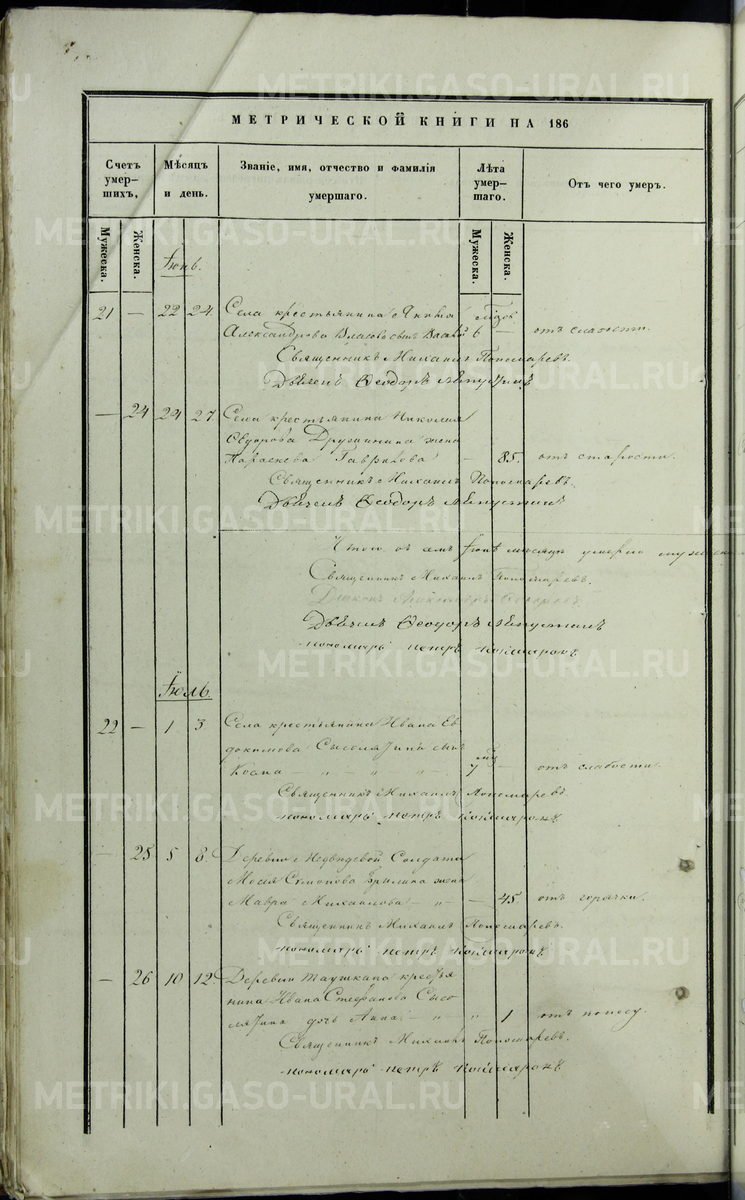 МЕТРИЧЕСКОЙ КНИГИ НА 186
Счетъ умер- шихъ,
Мѣсяцъ и день.
Званіе, имя, отчество и фамилія умершаго.
Лѣта умер- шаго.
Отъ чего умеръ.
Мужеска. Женска. Мужеска. Женска.
Іюнь.
21 — 22 24 Села крестьянина
Александрова 6 — отъ слабости.
Священникъ Михаилъ Пономаревъ.
Дьячекъ Ѳеодоръ
— 24 24 27 Села крестьянина Николая
Дружинина жена
Гаврилова — 85. отъ старости.
Священникъ Михаилъ Пономаревъ.
Дьячекъ Ѳеодоръ
Итого въ семъ Іюнѣ мѣсяцѣ умерло
Священникъ Михаилъ Пономаревъ.
Дьячекъ Ѳеодоръ
пономарь петръ
Іюль.
22 — 1 3 Села крестьянина Ивана Ев
докимова сынъ
— " — " " 7 — отъ слабости.
Священникъ Михаилъ Пономаревъ
пономарь петръ
— 25 5 8. Деревни Медвѣдевой Солдата
жена
Мавра Михаилова — " — — 45 отъ горячки.
Священникъ Михаилъ Пономаревъ.
пономарь петръ
— 26 10 12 Деревни кресть
янина Ивана Стефанова Сысо
лятина дочь Анна — " — " 1 отъ поносу.
Священникъ Михаилъ Пономаревъ.
пономарь петръ
METRIKI.GASO-URAL.RU